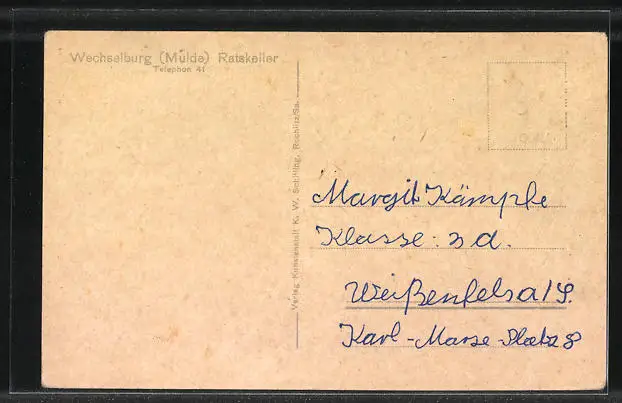 Wechselburg (Mulde) Ratskeller
Telephon 41
Verlag Kunstanstalt K. W. Schilling, Rochlitz/Sa.
Margit Kämpfe
Klasse: 3 d.
Weißenfels a/S.
Karl-Marx-Platz 8